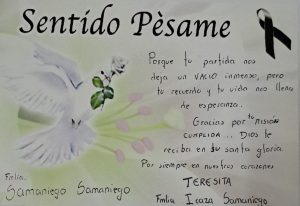 Sentido Pèsame
Porque tu partida nos
deja un VACIO inmenso, pero
tu recuerdo y tu vida nos llena
de esperanza.
Gracias por tu MISION
CUMPLIDA... DIOS te
reciba en su santa gloria.
Por siempre en nuestros corazones
TERESITA
Fmlia.
Samaniego Samaniego
Fmlia Icaza Samaniego